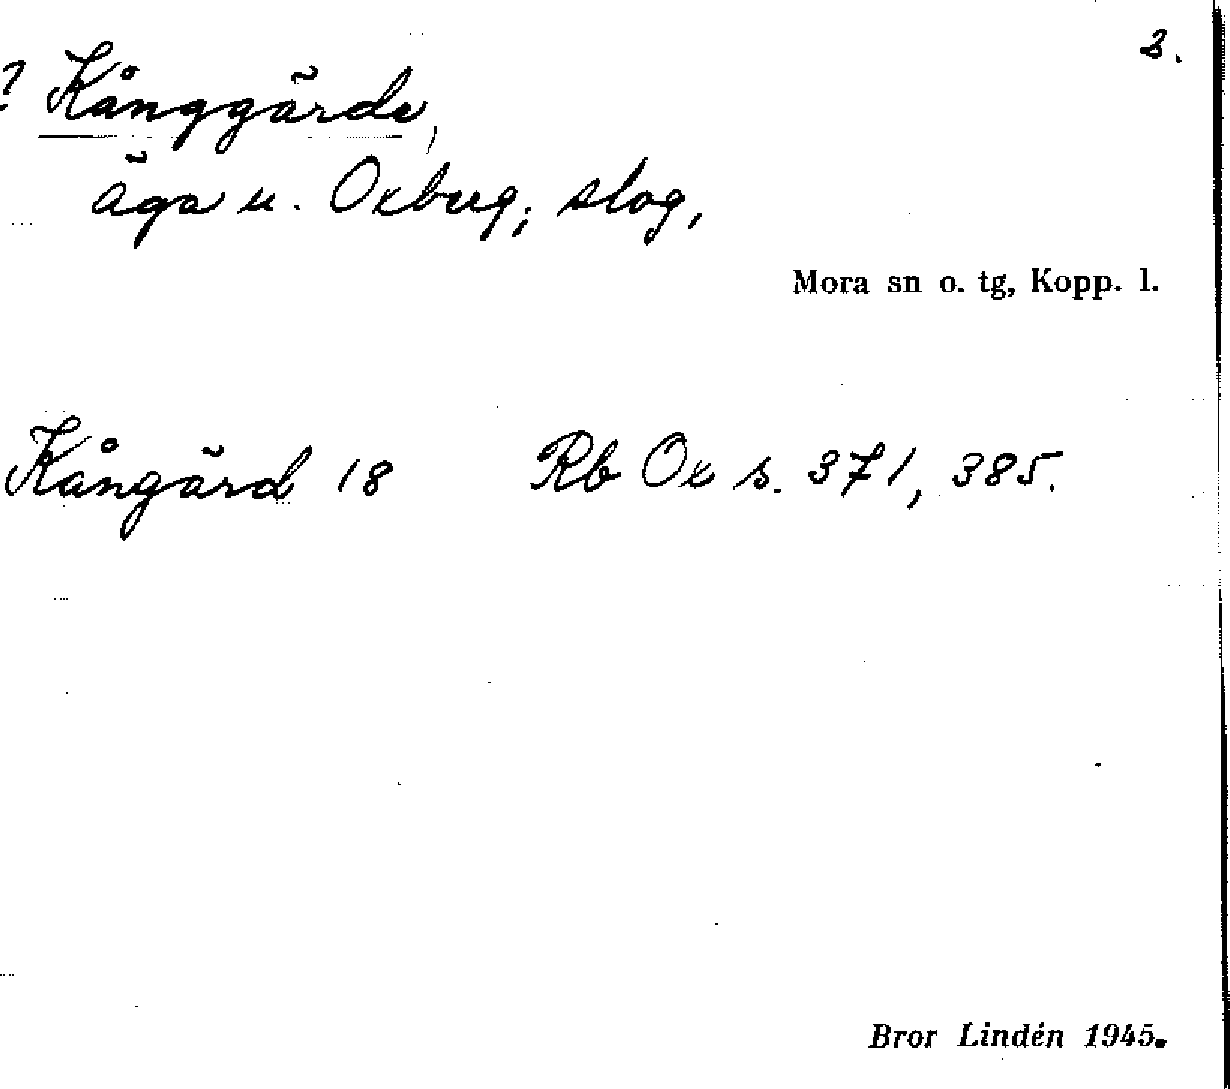 2.
? Kånggärde,
äga u. Oxberg; slog,
Mora sn o. tg, Kopp. l.
Kångärd 18 Rb Ox s. 371, 385.
Bror Lindén 1945.